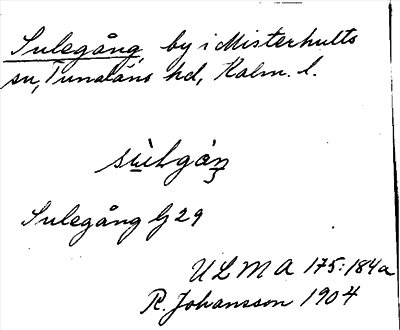 Sulegång, by i Misterhults
sn, Tunaläns hd, Kalm. l.
Sulegång G 29
ULMA 175:184a
R. Johansson 1904